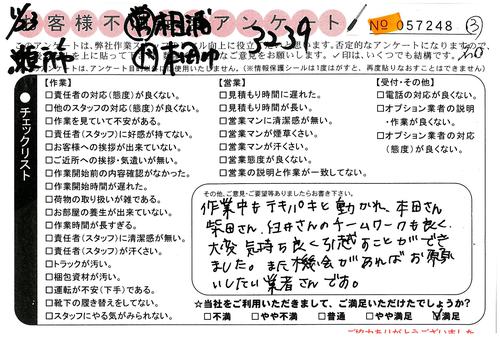 お客様不満アンケート
11/23
3239
№ 057248 ③
このアンケートは、弊社作業スタッフの
チェックリスト
【作業】
□責任者の対応(態度)が良くない。
□他のスタッフの対応(態度)が良くない。
□作業を見ていて不安がある。
□責任者(スタッフ)に好感が持てない。
□お客様への挨拶が出来ていない。
□ご近所への挨拶・気遣いが無い。
□作業開始前の内容確認がなかった。
□作業開始時間が遅れた。
□荷物の取り扱いが雑である。
□お部屋の養生が出来ていない。
□作業時間が長すぎる。
□責任者(スタッフ)に清潔感が無い。
□責任者(スタッフ)が汗くさい。
□トラックが汚い。
□梱包資材が汚い。
□運転が不安(下手)である。
□靴下の履き替えをしてない。
□スタッフにやる気がみられない。
【営業】
□見積もり時間に遅れた。
□見積もり時間が長い。
□営業マンに清潔感が無い。
□営業マンが煙草くさい。
□営業マンが汗くさい。
□営業態度が良くない。
□営業の説明と作業が一致してない。
【受付・その他】
□電話の対応が良くない。
□オプション業者の説明
・作業が良くない。
□オプション業者の対応
(態度)が良くない。
その他、ご意見・ご要望等ありましたらお書き下さい。
作業中もテキパキと動かれ、本田さん
柴田さん、臼井さんのチームワークも良く、
大変気持ち良く引越すことができ
ました。また機会があればお願
いしたい業者さんです。
☆当社をご利用いただきまして、ご満足いただけたでしょうか?
□不満 □やや不満 □普通 □やや満足 ☑満足
ご協力ありがとうございました